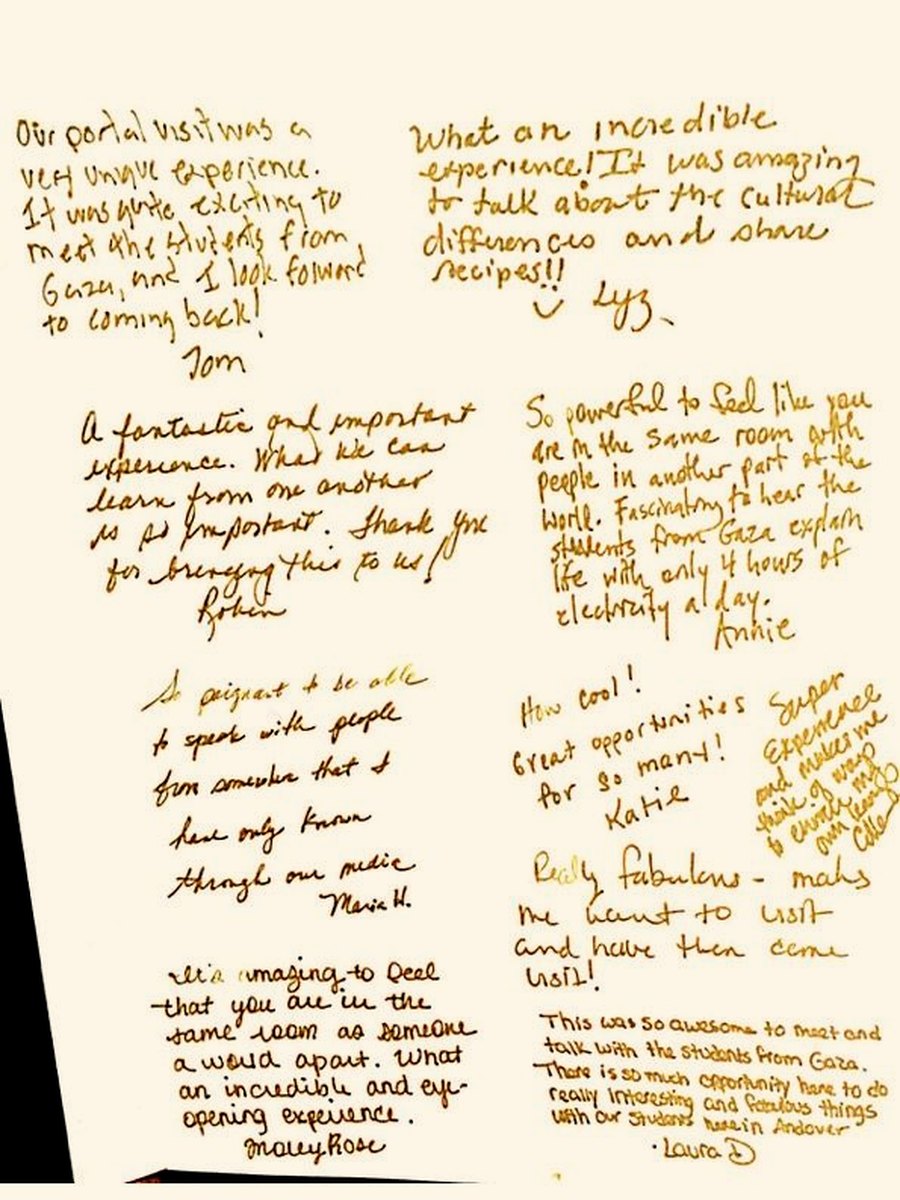 Our portal visit was a
very unique experience.
It was quite exciting to
meet the students from
Gaza, and I look forward
to coming back!
Tom
What an incredible
experience! It was amazing
to talk about the cultural
differences and share
recipes!!
Lyz
A fantastic and important
experience. What we can
learn from one another
is so important. Thank you
for bringing this to us!
Robin
So powerful to feel like you
are in the same room with
people in another part of the
world. Fascinating to hear the
students from Gaza explain
life with only 4 hours of
electricity a day.
Annie
So poignant to be able
to speak with people
from somewhere that I
have only known
through our media
Maria H.
How cool!
Great opportunities
for so many!
Katie
Super
Experience
and makes me
think of ways
to enrich my
own
Really fabulous - makes
me want to visit
and have them come
visit!
It's amazing to feel
that you are in the
same room as someone
a world apart. What
an incredible and eye-
opening experience.
Maley Rose
This was so awesome to meet and
talk with the students from Gaza.
There is so much opportunity here to do
really interesting and fabulous things
with our students here in Andover
Laura D